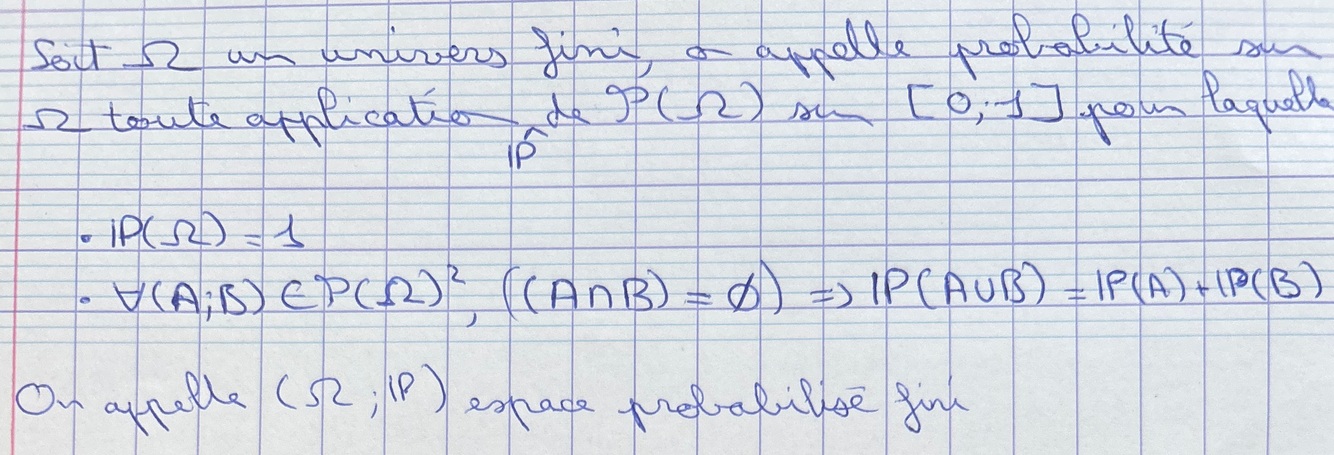 Soit Ω un univers fini, on appelle probabilité sur
Ω toute application de 𝒫(Ω) sur [0;1] pour laquelle
ℙ
• ℙ(Ω) = 1
• ∀(A;B) ∈ 𝒫(Ω)², ((A∩B) = ∅) => ℙ(A∪B) = ℙ(A) + ℙ(B)
On appelle (Ω;ℙ) espace probabilisé fini